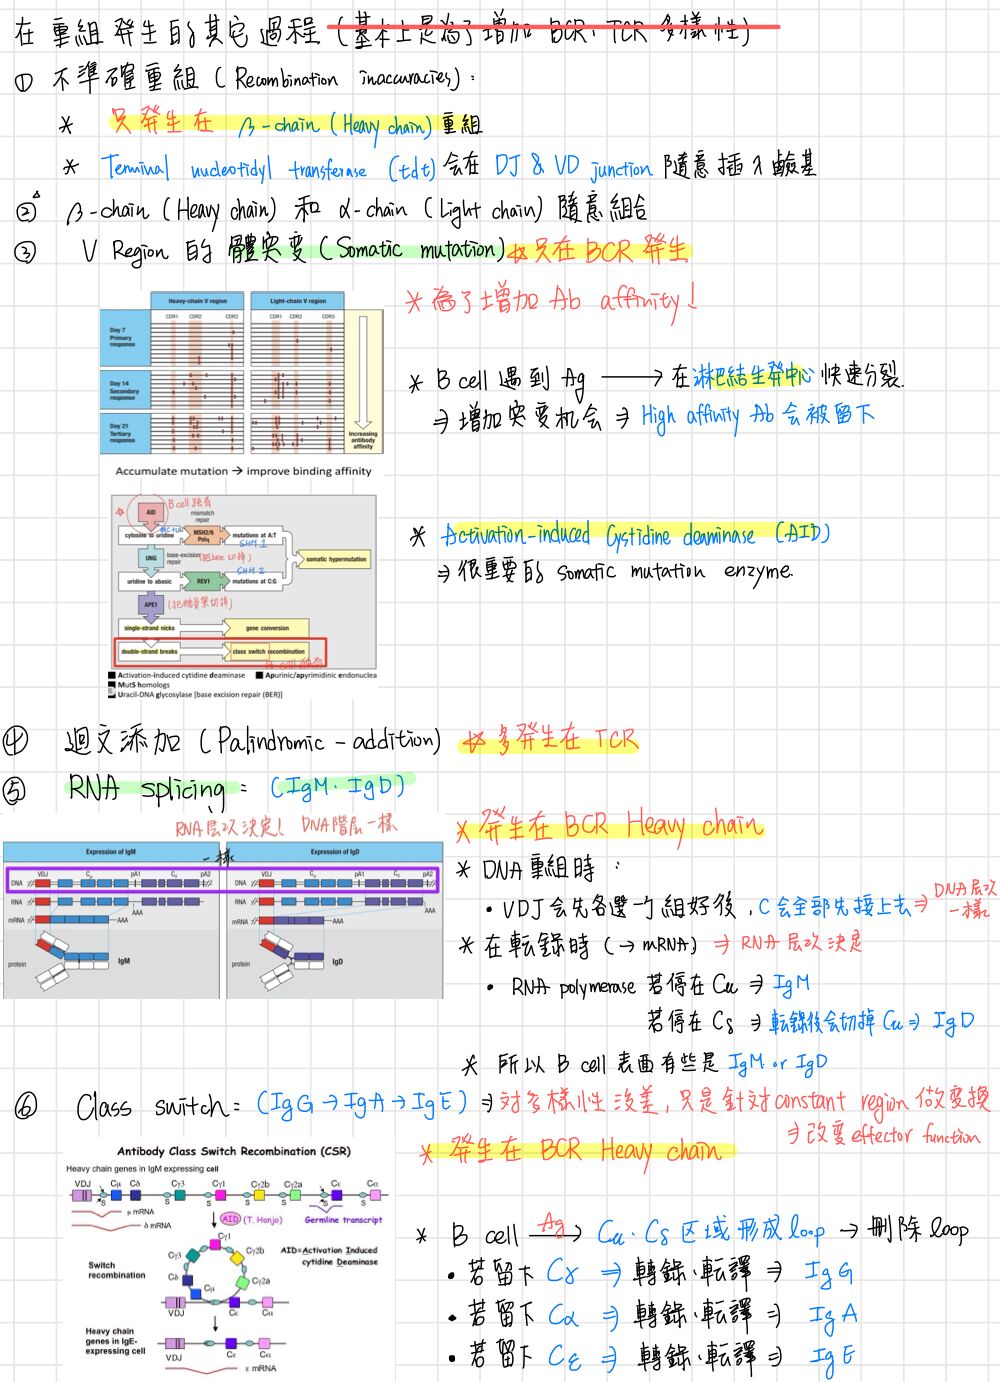 在重組發生的其它過程(基本上是為了增加 BCR、TCR 多樣性)
① 不準確重組 (Recombination inaccuracies):
* 只發生在 β-chain (Heavy chain) 重組
* Terminal nucleotidyl transferase (tdt) 会在 DJ & VD junction 隨意插入鹼基
② β-chain (Heavy chain) 和 α-chain (Light chain) 隨意組合
③ V Region 的 體突变 (Somatic mutation) 只在 BCR 發生
Heavy-chain V region Light-chain V region
CDR1 CDR2 CDR3 CDR1 CDR2 CDR3
Day 7
Primary
response
Day 14
Secondary
response
Day 21
Tertiary
response
Increasing
antibody
affinity
Accumulate mutation → improve binding affinity
* 為了增加 Ab affinity!
* B cell 遇到 Ag → 在淋巴結生發中心快速分裂.
⇒ 增加突变机会 ⇒ High affinity Ab 会被留下
AID
B cell 独有
mismatch
repair
cytosine to uridine
MSH2/6
Polη
mutations at A:T
SHM-1
UNG
base-excision
repair
(把base切掉)
somatic hypermutation
SHM-2
uridine to abasic
REV1
mutations at C:G
APE1
(把糖骨架切掉)
single-strand nicks
gene conversion
double-strand breaks
class switch recombination
B cell 独有
Activation-induced cytidine deaminase
Apurinic/apyrimidinic endonuclea
MutS homologs
Uracil-DNA glycosylase [base excision repair (BER)]
* Activation-induced Cystidine deaminase (AID)
⇒ 很重要的 somatic mutation enzyme.
④ 迴文添加 (Palindromic-addition) 多發生在 TCR
⑤ RNA splicing: (IgM、IgD)
RNA层次決定! DNA階层一樣
一樣
Expression of IgM Expression of IgD
VDJ Cμ pA1 Cδ pA2 VDJ Cμ pA1 Cδ pA2
DNA DNA
RNA RNA
AAA AAA
mRNA AAA mRNA AAA
protein IgM protein IgD
* 發生在 BCR Heavy chain
* DNA重組時:
• VDJ会先各選一个組好後, C会全部先接上去 ⇒ DNA层次一樣
* 在転錄時 (→ mRNA) ⇒ RNA层次決定
• RNA polymerase 若停在 Cμ ⇒ IgM
若停在 Cδ ⇒ 転錄後会切掉 Cμ ⇒ IgD
* 所以 B cell 表面有些是 IgM or IgD
⑥ Class switch: (IgG → IgA → IgE) ⇒ 对多樣性沒差, 只是針对 constant region 做变換
⇒ 改变 effector function
* 發生在 BCR Heavy chain
Antibody Class Switch Recombination (CSR)
Heavy chain genes in IgM expressing cell
VDJ Cμ Cδ Cγ3 Cγ1 Cγ2b Cγ2a Cε Cα
S S S S S S
μ mRNA
δ mRNA
AID (T. Honjo)
Germline transcript
Cγ1
Cγ3 Cγ2b
AID=Activation Induced
cytidine Deaminase
Switch
recombination
Cδ Cγ2a
Cμ
VDJ Cε Cα
Heavy chain
genes in IgE-
expressing cell
VDJ Cε Cα
ε mRNA
* B cell Ag → Cμ、Cδ 区域形成 loop → 刪除 loop
• 若留下 Cγ ⇒ 轉錄、転譯 ⇒ IgG
• 若留下 Cα ⇒ 轉錄、転譯 ⇒ IgA
• 若留下 Cε ⇒ 轉錄、転譯 ⇒ IgE